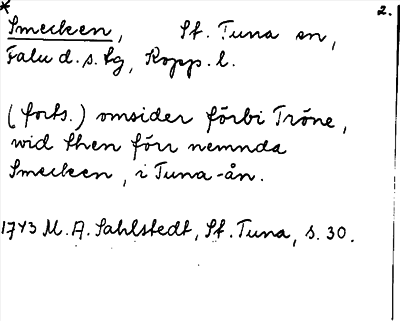 * 2.
Smecken, St. Tuna sn,
Falu d.s. fg, Kopp. l.
(forts.) omsider förbi Tröne,
wid then förr nemnda
Smecken, i Tuna-ån.
1743 M. A. Sahlstedt, St. Tuna, s. 30.